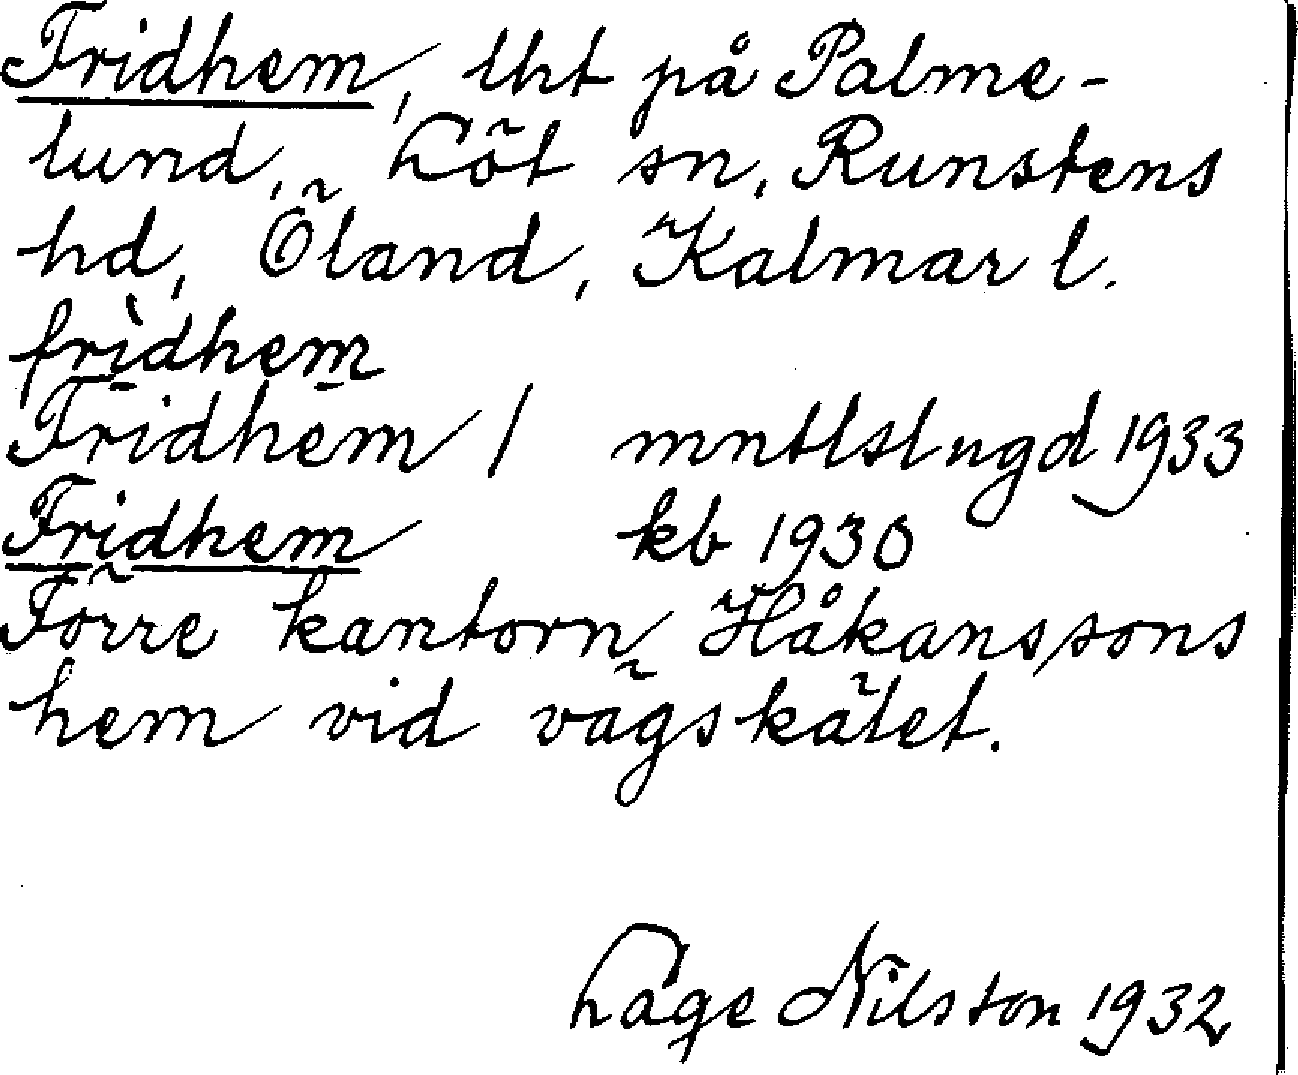 Fridhem, lht på Palme-
lund, Löt sn, Runstens
hd, Öland, Kalmar l.
frìdhem
Fridhem / mntlslngd 1933
Fridhem kb 1930
Förre kantorn Håkanssons
hem vid vägskälet.
Lage Nilsson 1932